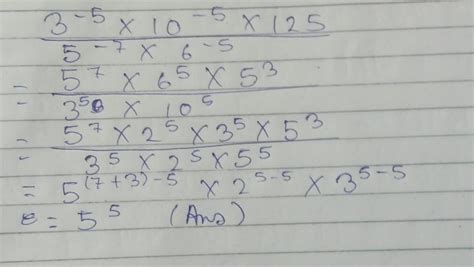 3⁻⁵ × 10⁻⁵ × 125
5⁻⁷ × 6⁻⁵
= 5⁷ × 6⁵ × 5³
3⁵ × 10⁵
= 5⁷ × 2⁵ × 3⁵ × 5³
3⁵ × 2⁵ × 5⁵
= 5⁽⁷⁺³⁾⁻⁵ × 2⁵⁻⁵ × 3⁵⁻⁵
= 5⁵ (Ans)